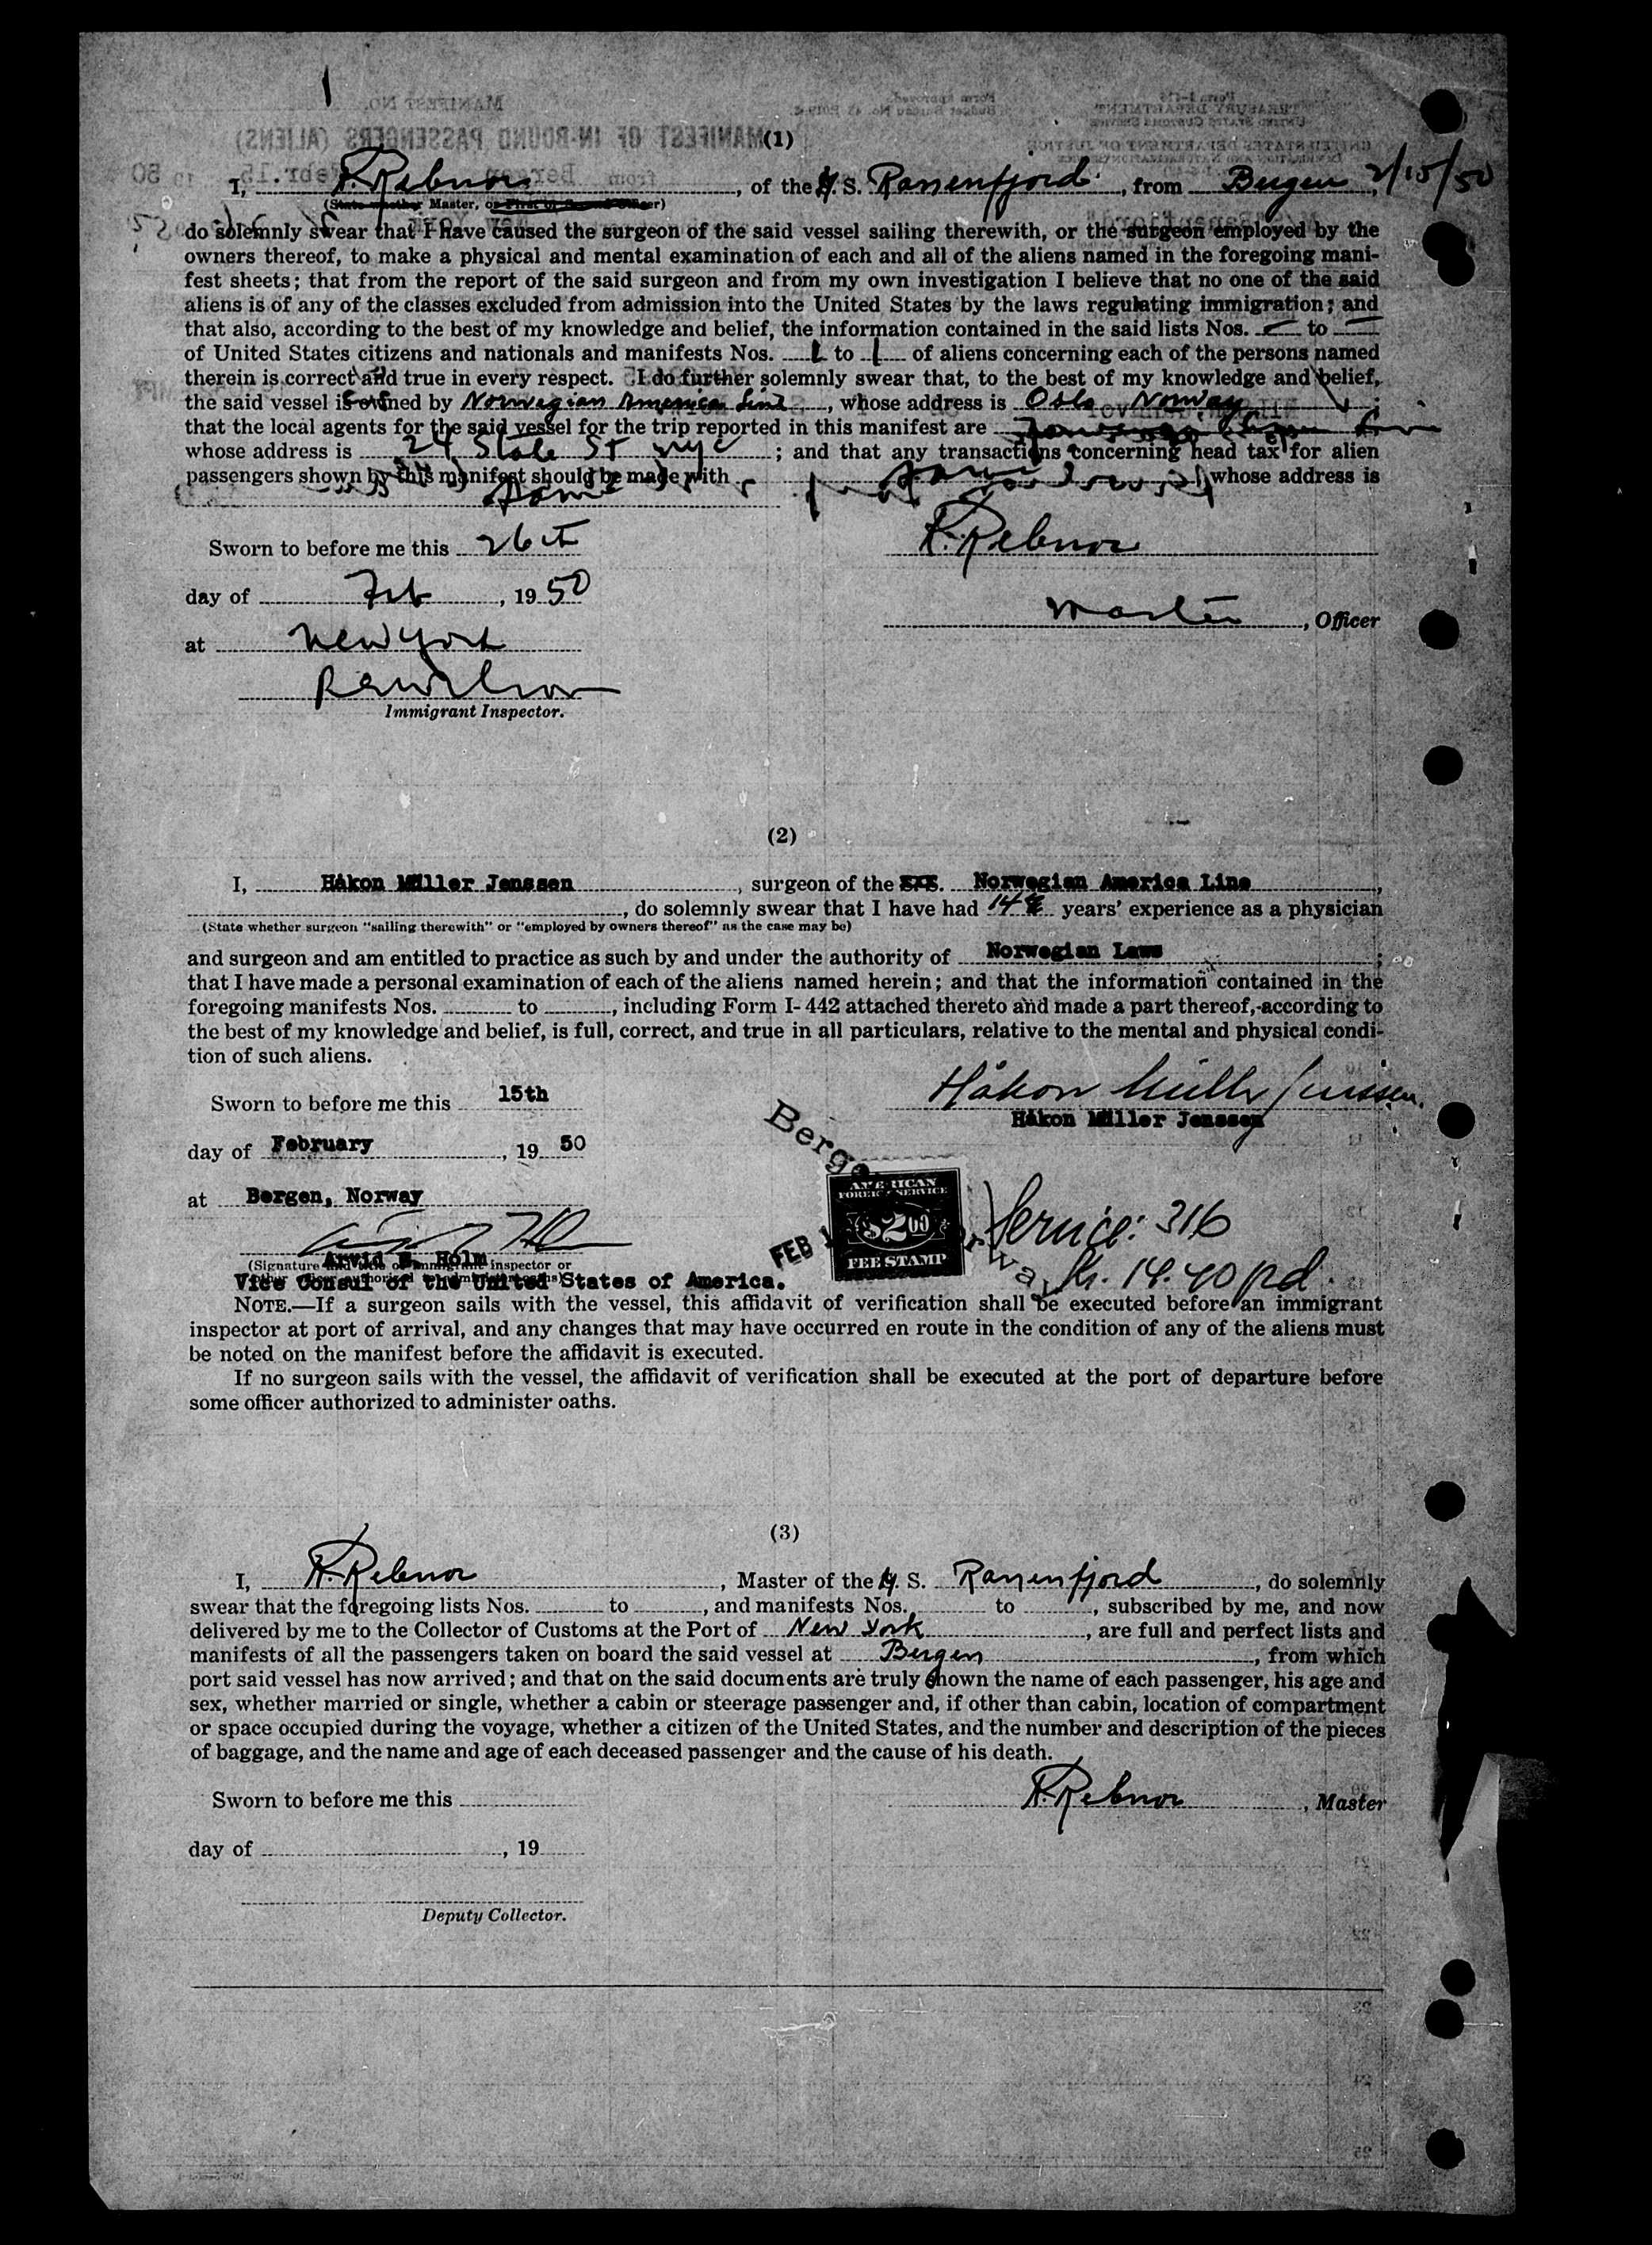 (1)
I, R. Rebnor, of the M. S. Ranenfjord, from Bergen, 2/15/50
(State whether Master, or First or Second Officer)
do solemnly swear that I have caused the surgeon of the said vessel sailing therewith, or the surgeon employed by the
owners thereof, to make a physical and mental examination of each and all of the aliens named in the foregoing mani-
fest sheets; that from the report of the said surgeon and from my own investigation I believe that no one of the said
aliens is of any of the classes excluded from admission into the United States by the laws regulating immigration; and
that also, according to the best of my knowledge and belief, the information contained in the said lists Nos. — to —
of United States citizens and nationals and manifests Nos. 1 to 1 of aliens concerning each of the persons named
therein is correct and true in every respect. I do further solemnly swear that, to the best of my knowledge and belief,
the said vessel is owned by Norwegian America Line, whose address is Oslo Norway;
that the local agents for the said vessel for the trip reported in this manifest are
whose address is 24 State St NYC; and that any transactions concerning head tax for alien
passengers shown by this manifest should be made with Same whose address is
Same
Sworn to before me this 26th
R. Rebnor
day of Feb, 1950
Master, Officer
at New York
Immigrant Inspector.
(2)
I, Håkon Müller Jenssen, surgeon of the S.S. Norwegian America Line,
, do solemnly swear that I have had 14 years' experience as a physician
(State whether surgeon "sailing therewith" or "employed by owners thereof" as the case may be)
and surgeon and am entitled to practice as such by and under the authority of Norwegian Laws;
that I have made a personal examination of each of the aliens named herein; and that the information contained in the
foregoing manifests Nos. to , including Form I-442 attached thereto and made a part thereof, according to
the best of my knowledge and belief, is full, correct, and true in all particulars, relative to the mental and physical condi-
tion of such aliens.
Sworn to before me this 15th
Håkon Müller Jenssen.
Håkon Müller Jenssen
day of February, 1950
Bergen, Norway
at Bergen, Norway
AMERICAN
FOREIGN SERVICE
$2.00
FEE STAMP
FEB 1
Service: 316
Kr. 14.40 pd.
Arvid G. Holm
(Signature and title of immigrant inspector or
other officer authorized to administer oaths)
Vice Consul of the United States of America.
NOTE.—If a surgeon sails with the vessel, this affidavit of verification shall be executed before an immigrant
inspector at port of arrival, and any changes that may have occurred en route in the condition of any of the aliens must
be noted on the manifest before the affidavit is executed.
If no surgeon sails with the vessel, the affidavit of verification shall be executed at the port of departure before
some officer authorized to administer oaths.
(3)
I, R. Rebnor, Master of the M. S. Ranenfjord, do solemnly
swear that the foregoing lists Nos. to , and manifests Nos. to , subscribed by me, and now
delivered by me to the Collector of Customs at the Port of New York, are full and perfect lists and
manifests of all the passengers taken on board the said vessel at Bergen, from which
port said vessel has now arrived; and that on the said documents are truly shown the name of each passenger, his age and
sex, whether married or single, whether a cabin or steerage passenger and, if other than cabin, location of compartment
or space occupied during the voyage, whether a citizen of the United States, and the number and description of the pieces
of baggage, and the name and age of each deceased passenger and the cause of his death.
Sworn to before me this
R. Rebnor, Master
day of , 19
Deputy Collector.